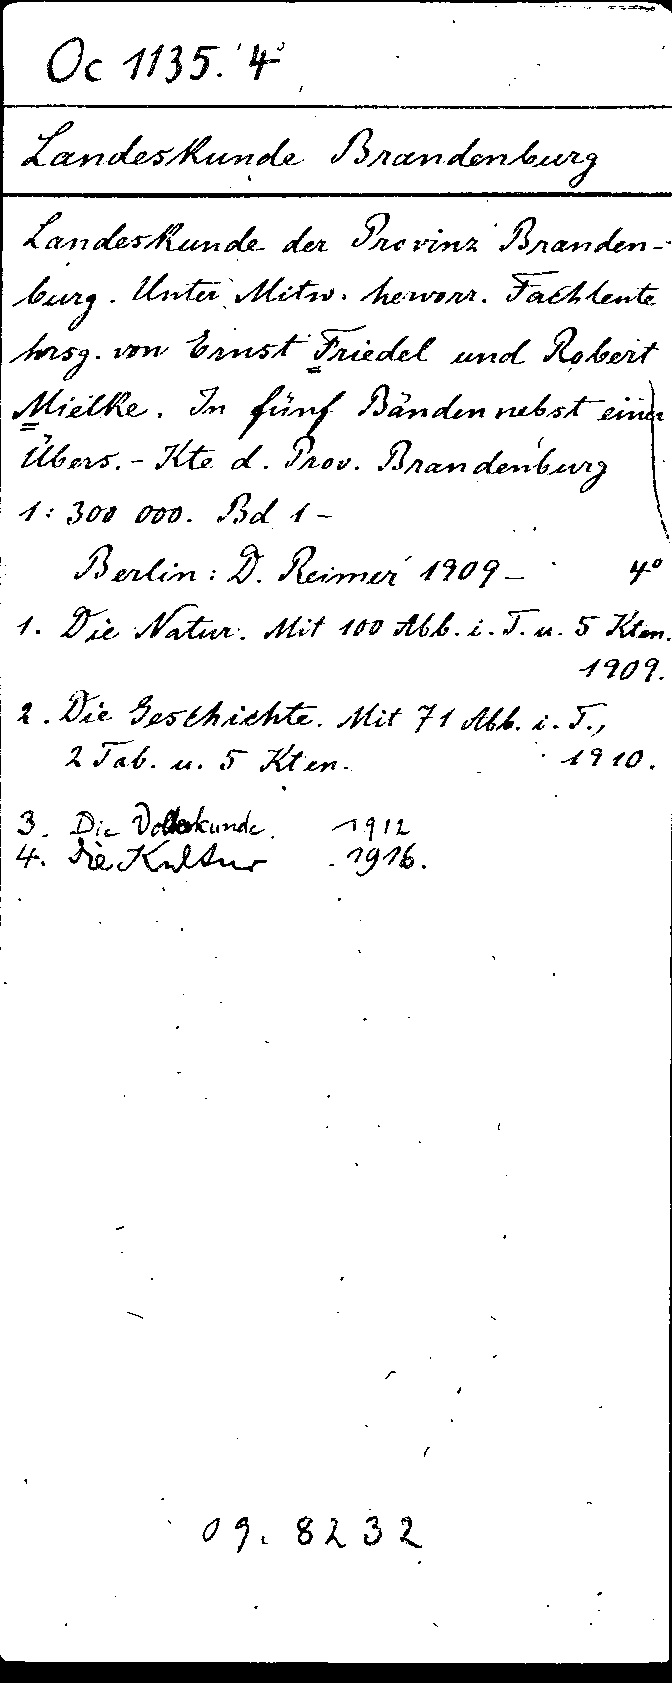 Oc 1135. 4°
Landeskunde Brandenburg
Landeskunde der Provinz Branden-
burg. Unter Mitw. hervorr. Fachleute
hrsg. von Ernst Friedel und Robert
Mielke. In fünf Bänden nebst einer
Übers.-Kte d. Prov. Brandenburg
1:300 000. Bd 1-
Berlin: D. Reimer 1909- 4°
1. Die Natur. Mit 100 Abb. i. T. u. 5 Kten.
1909.
2. Die Geschichte. Mit 71 Abb. i. T.,
2 Tab. u. 5 Kten. 1910.
3. Die Volkskunde. 1912
4. Die Kultur 1916.
09. 8232